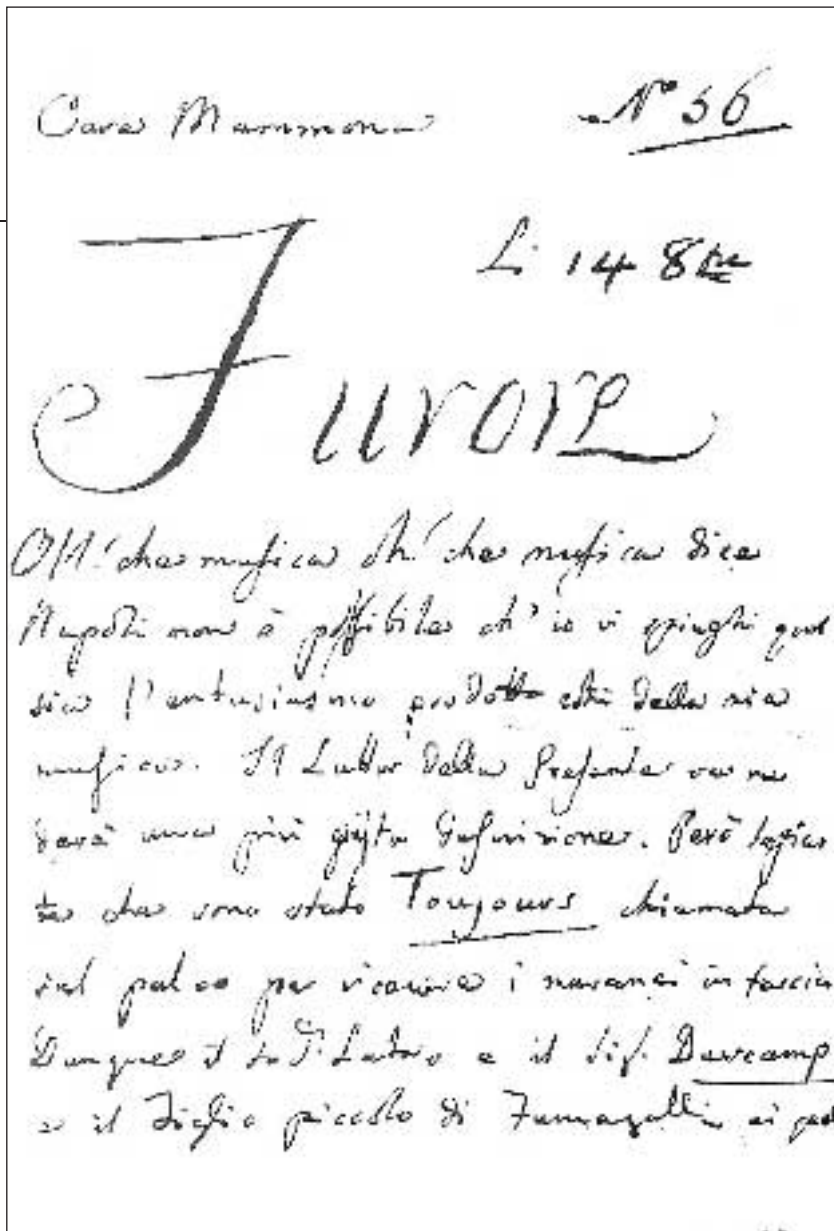 Cara Mammona
N° 36
Li 14 8bre
Furore
Oh! che musica oh! che musica dice
Napoli non è possibile ch' io vi spieghi qual
sia l'entusiasmo prodotto della mia
musica. Il Lator della Presente ve ne
darà una più giusta definizione. Però sappia
te che sono stato Toujours chiamato
sul palco per ricevere i naranci in faccia
Dunque il Latore e il Sig. Dercamp
e il Figlio piccolo di Fumagalli